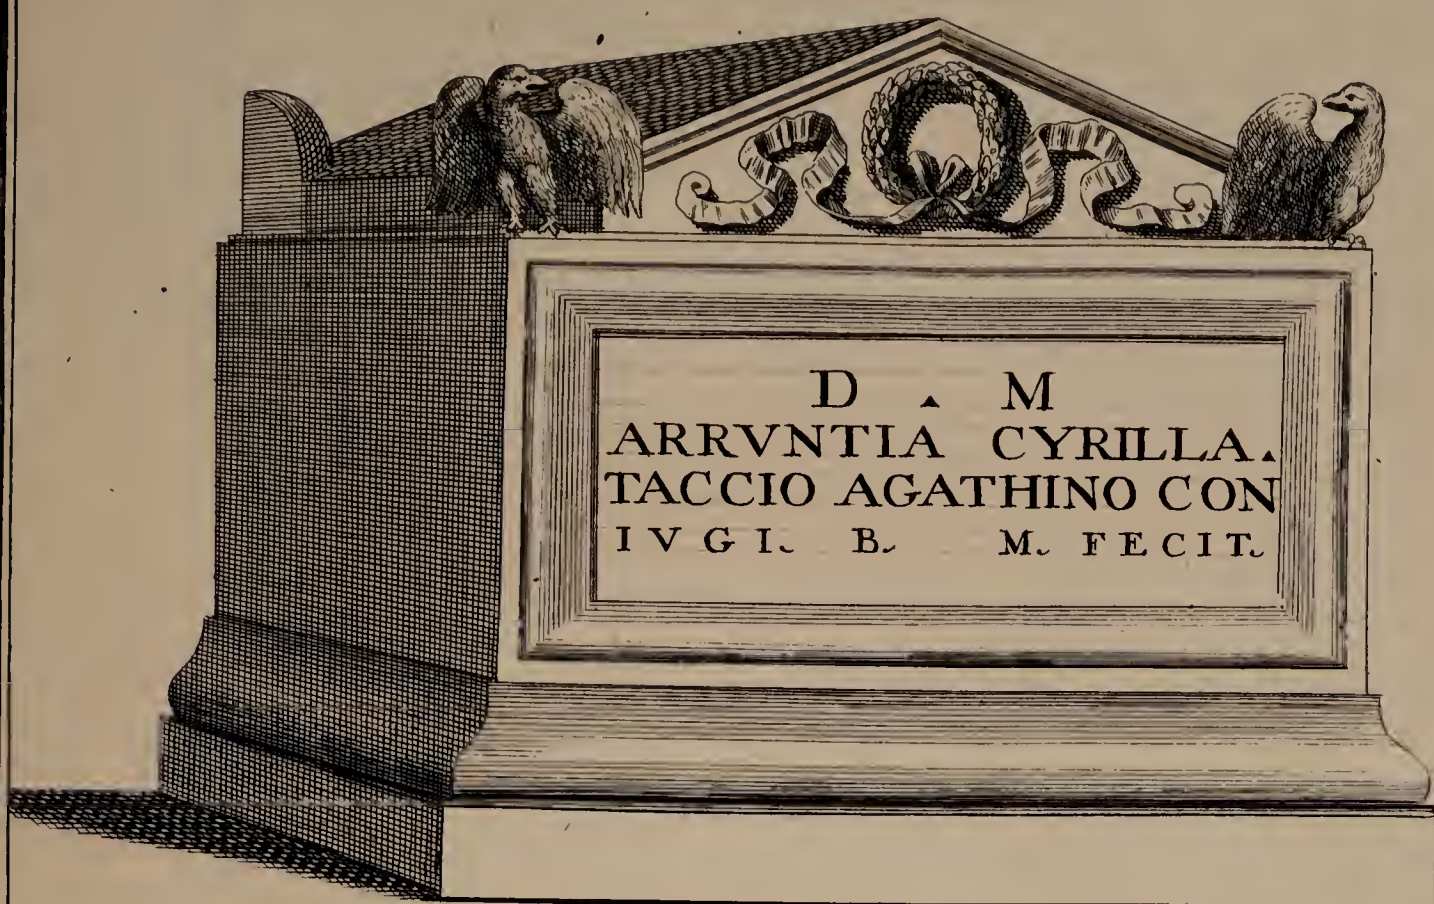 D ▴ M
ARRVNTIA CYRILLA▴
TACCIO AGATHINO CON
IVGI. B. M. FECIT.